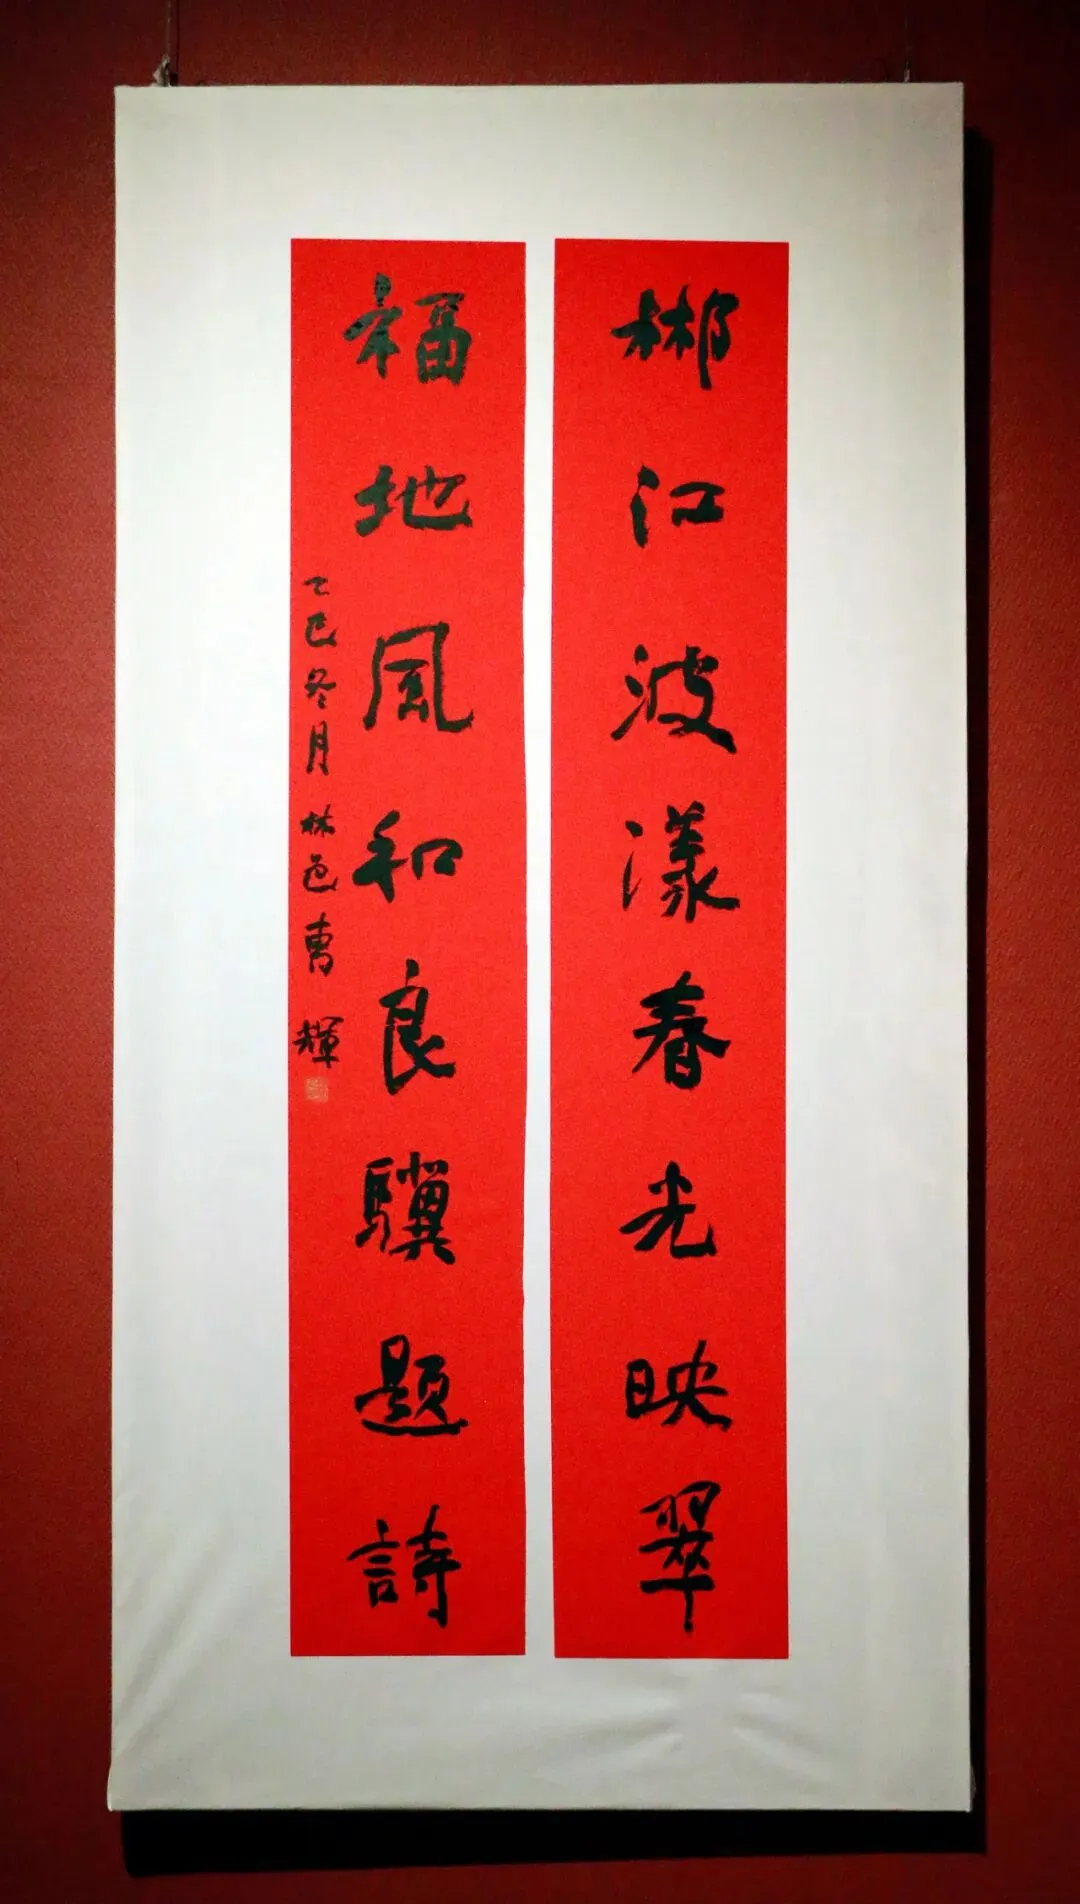 郴江波漾春光映翠
福地風和良驥題詩
乙巳冬月林邑曹輝